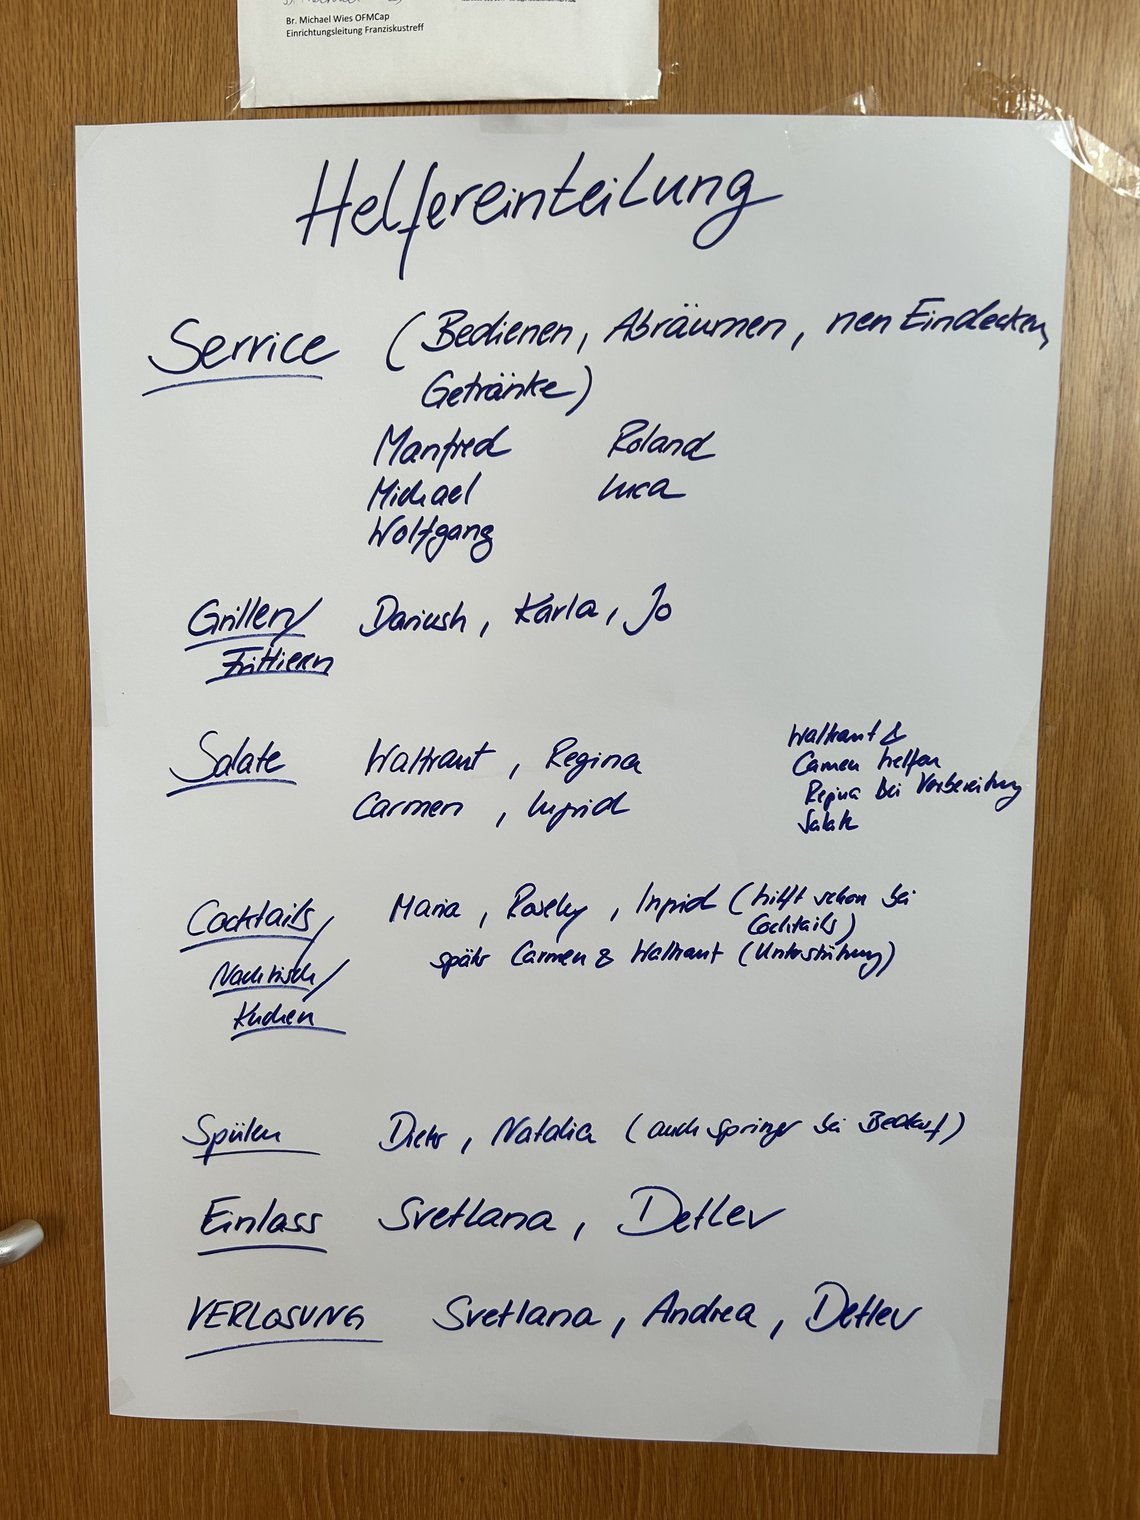 Br. Michael Wies OFMCap
Einrichtungsleitung Franziskustreff
Helfereinteilung
Service (Bedienen, Abräumen, neu Eindecken,
Getränke)
Manfred Roland
Michael Luca
Wolfgang
Grillen/ Dariush, Karla, Jo
Frittieren
Salate Waltraut, Regina
Carmen, Ingrid
Waltraut &
Carmen helfen
Regina bei Vorbereitung
Salate
Cocktails/ Maria, Ingrid (hilft schon bei
Cocktails)
später Carmen & Waltraut (Unterstützung)
Nachtisch/
Kuchen
Spülen Dieter, Natalia (auch Springer bei Bedarf)
Einlass Svetlana, Detlev
VERLOSUNG Svetlana, Andrea, Detlev